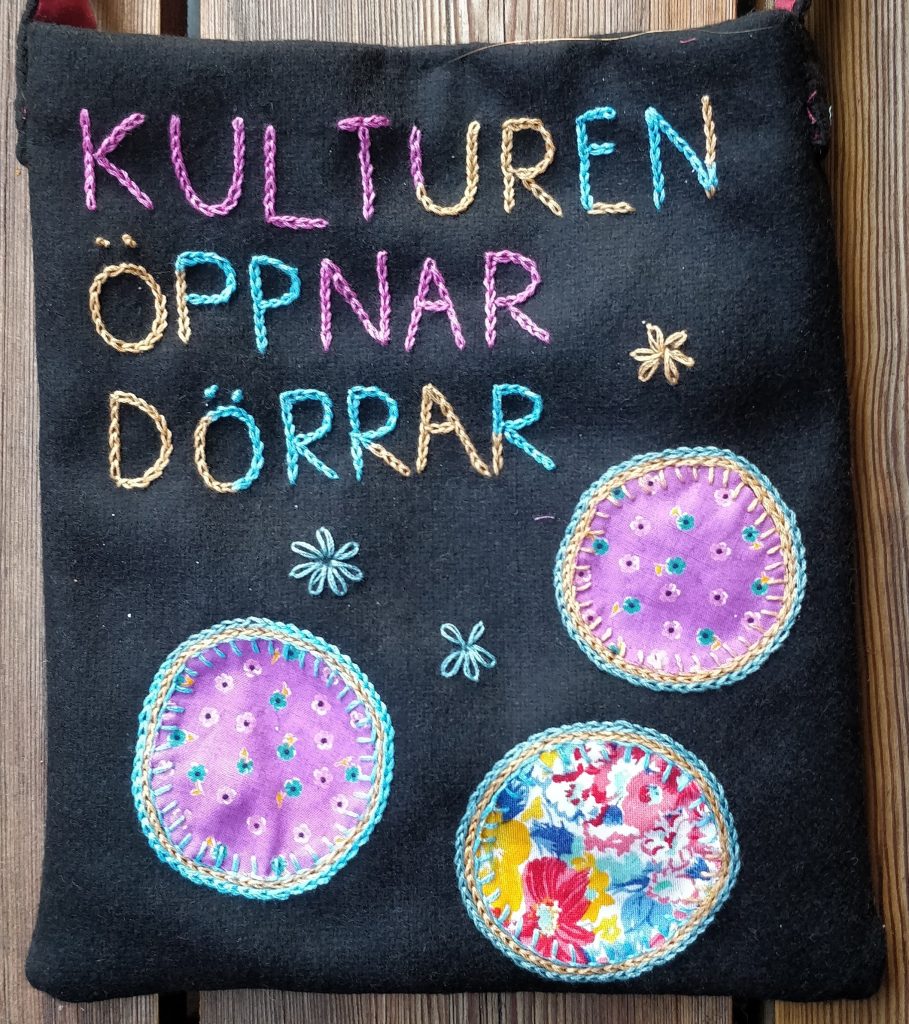 KULTUREN
ÖPPNAR
DÖRRAR